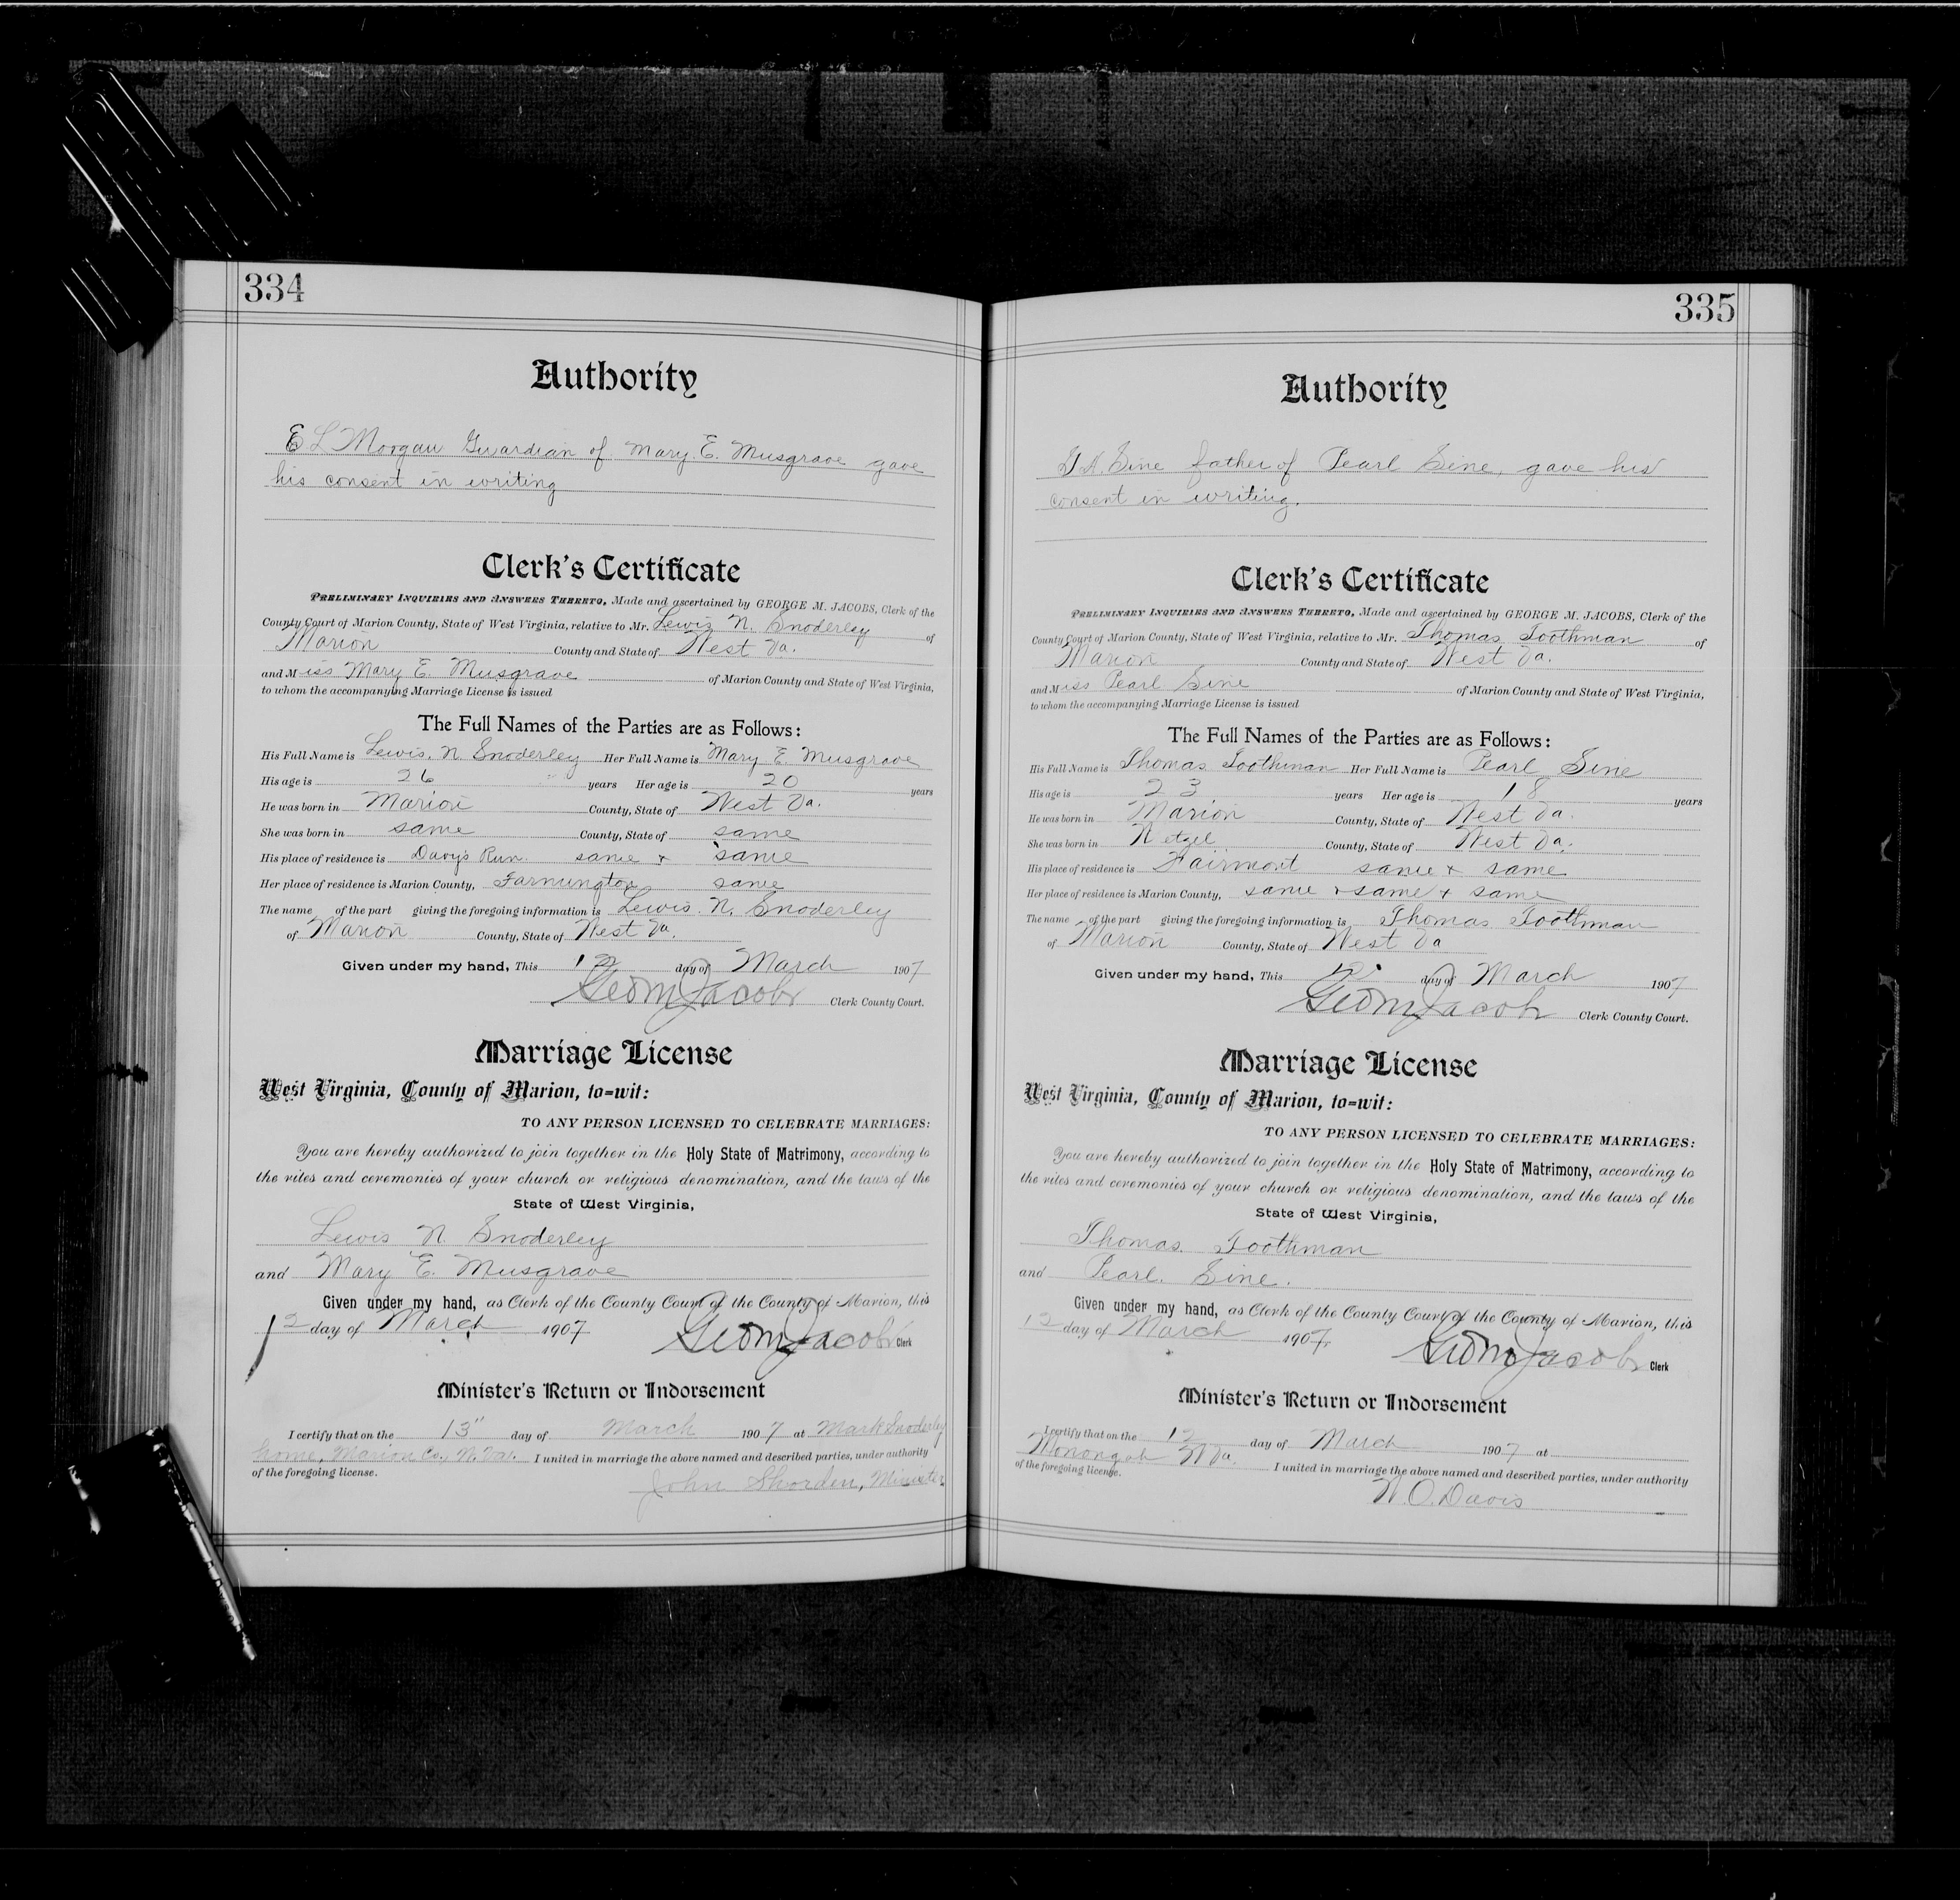 334
Authority
E L Morgan Guardian of Mary. E. Musgrave gave
his consent in writing
Clerk's Certificate
PRELIMINARY INQUIRIES AND ANSWERS THERETO, Made and ascertained by GEORGE M. JACOBS, Clerk of the
County Court of Marion County, State of West Virginia, relative to Mr. Lewis N. Snoderley of
Marion County and State of West Va.
and Miss Mary E. Musgrave of Marion County and State of West Virginia,
to whom the accompanying Marriage License is issued
The Full Names of the Parties are as Follows:
His Full Name is Lewis. N. Snoderley Her Full Name is Mary E. Musgrave
His age is 26 years Her age is 20 years
He was born in Marion County, State of West Va.
She was born in same County, State of same
His place of residence is Davys Run. same + same
Her place of residence is Marion County, Farmington same
The name of the part giving the foregoing information is Lewis. N. Snoderley
of Marion County, State of West Va.
Given under my hand, This 12 day of March 1907
Geo M Jacobs Clerk County Court.
Marriage License
West Virginia, County of Marion, to=wit:
TO ANY PERSON LICENSED TO CELEBRATE MARRIAGES:
You are hereby authorized to join together in the Holy State of Matrimony, according to
the rites and ceremonies of your church or religious denomination, and the laws of the
State of West Virginia,
Lewis N. Snoderley
and Mary E. Musgrave
Given under my hand, as Clerk of the County Court of the County of Marion, this
12 day of March 1907 Geo M Jacobs Clerk
Minister's Return or Indorsement
I certify that on the 13" day of March 1907 at Mark Snoderley
home, Marion Co., W. Va. I united in marriage the above named and described parties, under authority
of the foregoing license.
John Minister
335
Authority
Sine father of Pearl Sine, gave his
consent in writing.
Clerk's Certificate
PRELIMINARY INQUIRIES AND ANSWERS THERETO, Made and ascertained by GEORGE M. JACOBS, Clerk of the
County Court of Marion County, State of West Virginia, relative to Mr. Thomas Toothman of
Marion County and State of West Va.
and Miss Pearl Sine of Marion County and State of West Virginia,
to whom the accompanying Marriage License is issued
The Full Names of the Parties are as Follows:
His Full Name is Thomas Toothman Her Full Name is Pearl Sine
His age is 23 years Her age is 18 years
He was born in Marion County, State of West Va.
She was born in Wetzel County, State of West Va.
His place of residence is Fairmont same + same
Her place of residence is Marion County, same + same + same
The name of the part giving the foregoing information is Thomas Toothman
of Marion County, State of West Va
Given under my hand, This 12 day of March 1907
Geo M Jacobs Clerk County Court.
Marriage License
West Virginia, County of Marion, to=wit:
TO ANY PERSON LICENSED TO CELEBRATE MARRIAGES:
You are hereby authorized to join together in the Holy State of Matrimony, according to
the rites and ceremonies of your church or religious denomination, and the laws of the
State of West Virginia,
Thomas. Toothman
and Pearl. Sine.
Given under my hand, as Clerk of the County Court of the County of Marion, this
12 day of March 1907. Geo M Jacobs Clerk
Minister's Return or Indorsement
I certify that on the 12 day of March 1907 at
Monongah W Va. I united in marriage the above named and described parties, under authority
of the foregoing license.
W. O. Davis